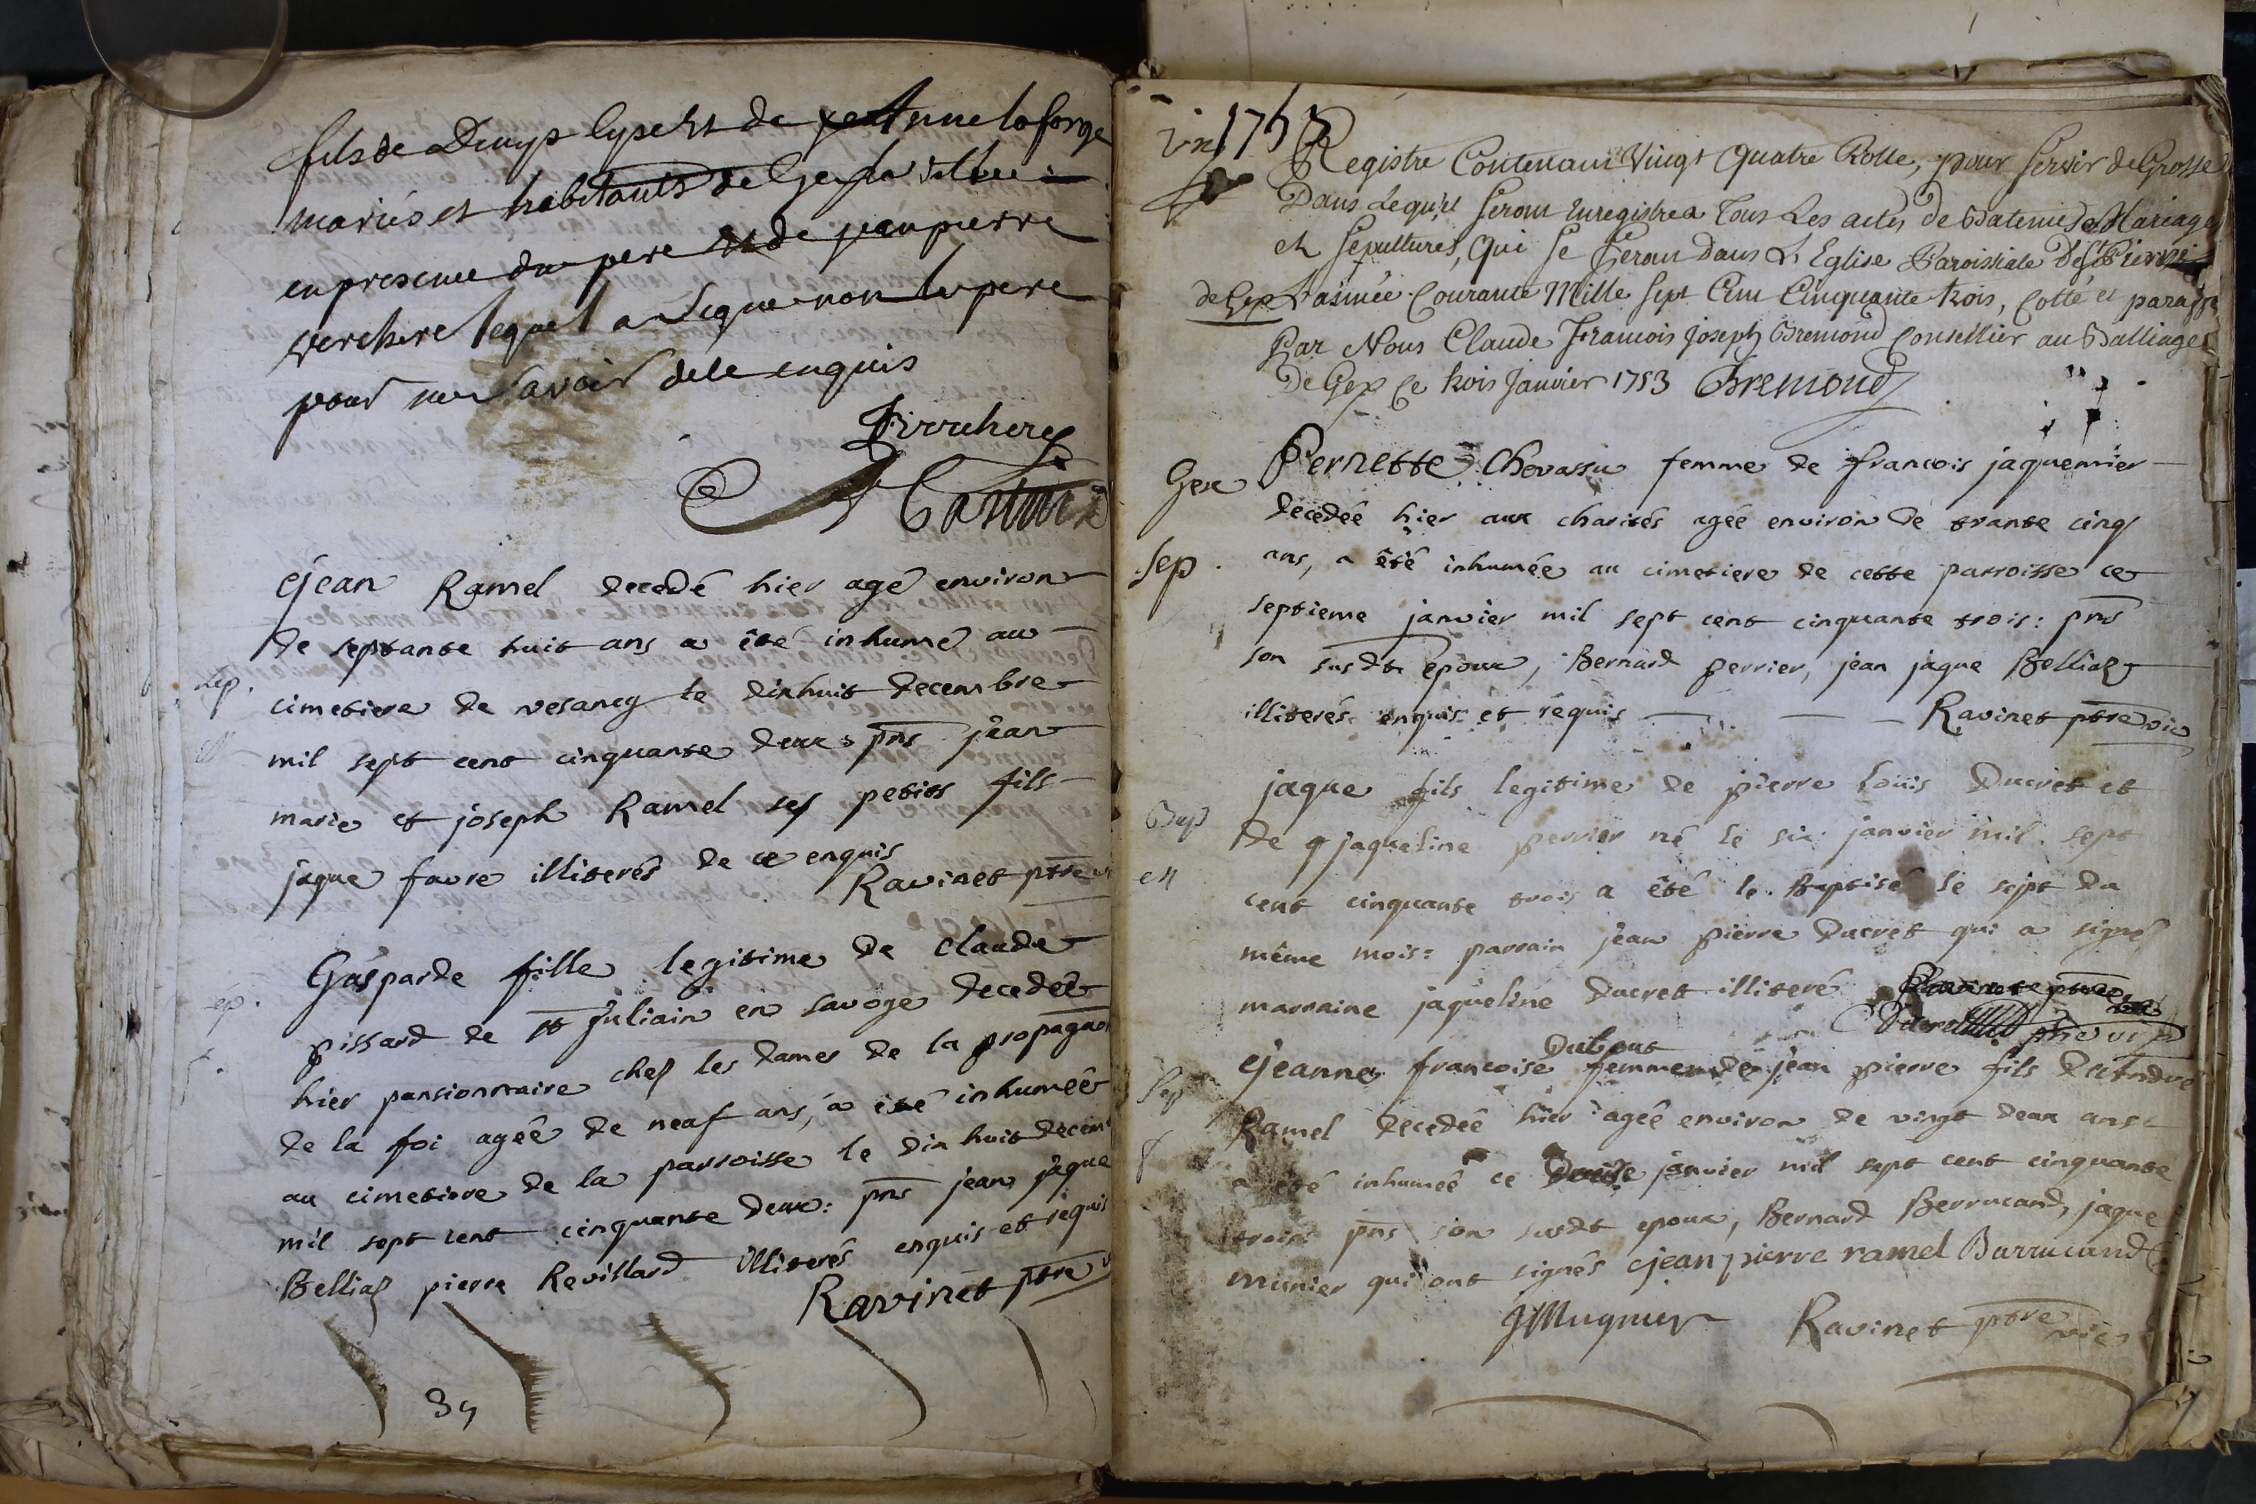 fils de Denys lyset et de Anne laforge
mariés et habitants de Gex la ville
en presence du pere et de jean pierre
verchere lequel a signe non le pere
pour ne savoir de ce enquis
Jean Ramel decedé hier agé environ
de septante huit ans a été inhumé au
sep.
cimetiere de vesancy le dixhuit decembre
mil sept cent cinquante deux: pns jean
marie et joseph Ramel ses petits fils
jaque favre illiterés de ce enquis
Ravinet ptre
Gasparde fille legitime de claude
pissard de st Juliain en savoye decedeê
hier pansionnaire chez les dames de la propagaon
de la foi agée de neuf ans, a été inhumeê
au cimetiere de la parroisse le dix huit decem
mil sept cent cinquante deux: pns jean jaque
Belliaz pierre Revillard illiterés enquis et requis
Ravinet ptre
39
1753
Registre Contenant Vingt Quatre Rolle, pour servir de Grosse
Dans Lequel seront Enregistrea Tous Les actes de Batemes Mariages
et sepultures, Qui se feront dans L'Eglise Paroissiale De St Pierre
de Gex L'année Courante Mille sept Cent Cinquante trois, Cotté et paraffé
Par Nous Claude Francois Joseph Bremond Conseillier au Balliage
De Gex Ce trois Janvier 1753 Bremond
Gex
Pernette Chevassu femme de francois jaquemier
decedée hier aux charités agée environ de trante cinq
sep.
ans, a été inhumée au cimetiere de cette parroisse ce
septieme janvier mil sept cent cinquante trois: pns
son susdt epoux, Bernard perrier, jean jaque Belliaz
illiterés enquis et requis Ravinet ptre vic
jaque fils legitime de pierre Louis Ducret et
Bap
de jaqueline perrier né le six janvier mil sept
cent cinquante trois a été le Baptisé le sept du
même mois: parrain jean pierre Ducret qui a signé
marraine jaqueline Ducret illiteré
Jeanne francoise femme de jean pierre fils d'André
Sep
Ramel decedeê hier ageê environ de vingt deux ans
a été inhumeê ce janvier mil sept cent cinquante
trois pns son susdt epoux, Bernard Berrucand, jaque
munier qui ont signés jean pierre ramel Burrucand
JMugnier Ravinet ptre
vic